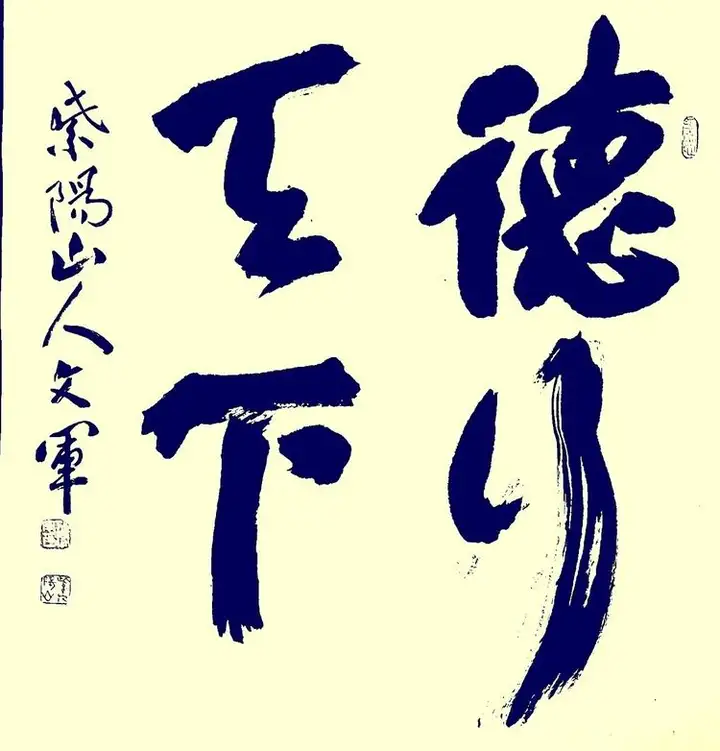 德行
天下
紫陽山人文軍